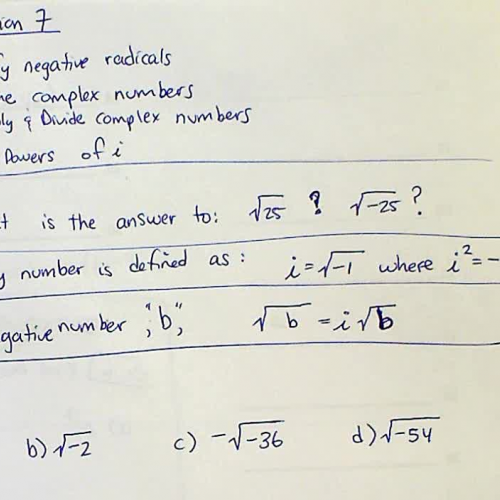 ion 7
fy negative radicals
ne complex numbers
ply & Divide complex numbers
Powers of i
t is the answer to: √25 ? √-25 ?
y number is defined as: i=√-1 where i²=-
gative number "b", √b = i√b
b) √-2 c) -√-36 d) √-54